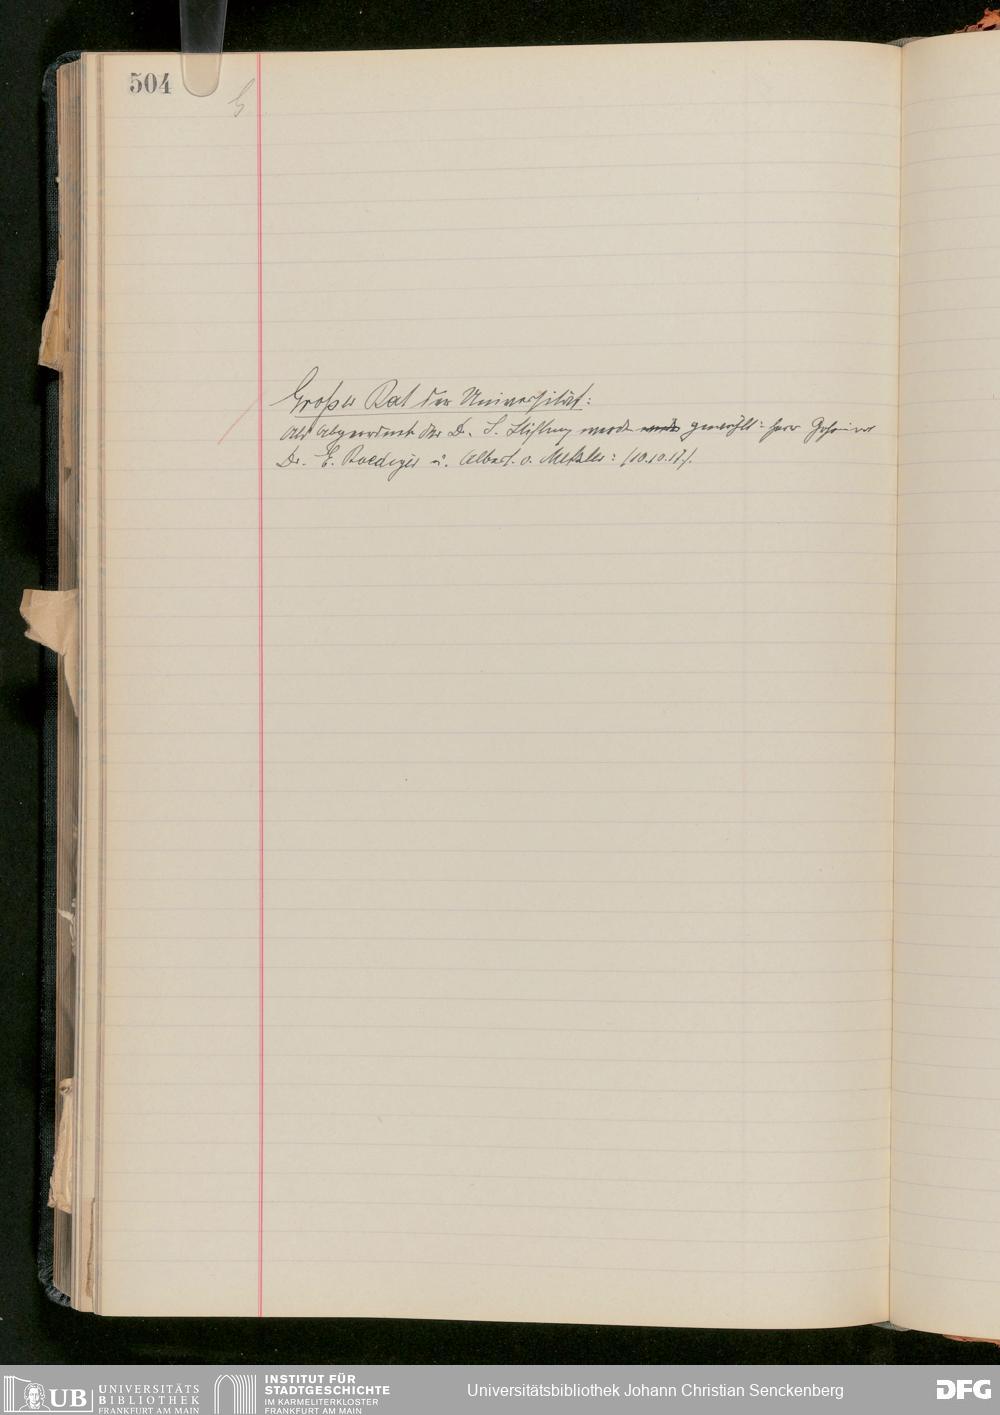 504
G
Großer Rat der Universität:
Als Abgeordnete der Dr. S. Stiftung wurden gewählt: Herr Geheimer
Dr. E. Roediger u. Albert v. Metzler: (10.10.17).
UB UNIVERSITÄTS
BIBLIOTHEK
FRANKFURT AM MAIN
INSTITUT FÜR
STADTGESCHICHTE
IM KARMELITERKLOSTER
FRANKFURT AM MAIN
Universitätsbibliothek Johann Christian Senckenberg
DFG